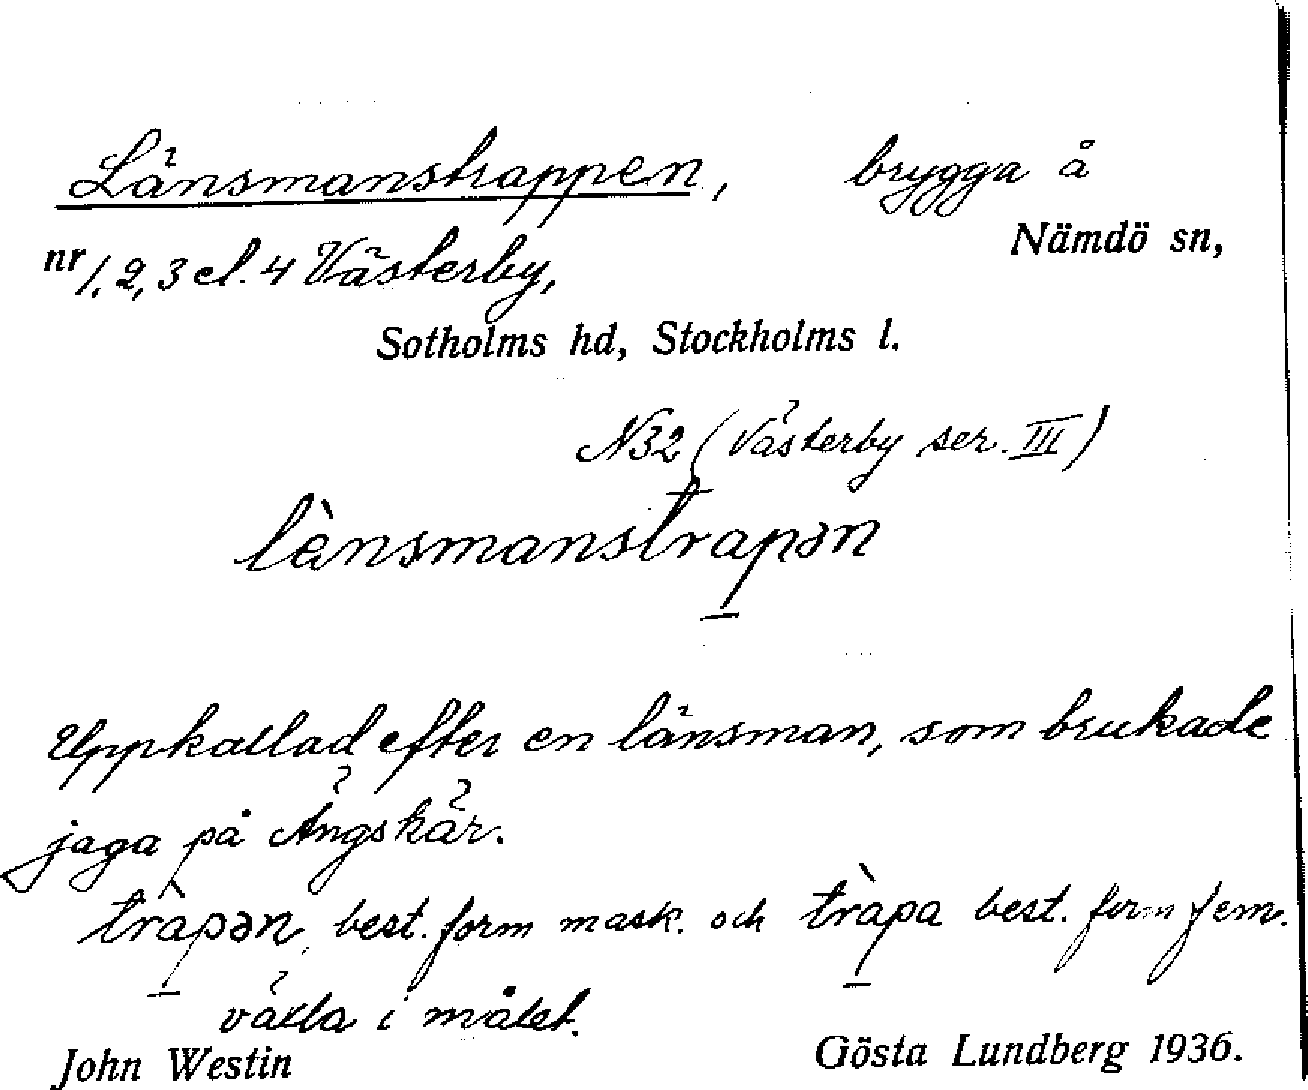 Länsmanstrappen, brygga å
Nämdö sn,
nr 1, 2, 3 el. 4 Västerby,
Sotholms hd, Stockholms l.
N32 (Västerby ser. III)
lànsmanstrapən
Uppkallad efter en länsman, som brukade
jaga på Ängskär.
tràpən, best. form mask. och tràpa best. form fem.
växla i målet.
John Westin Gösta Lundberg 1936.